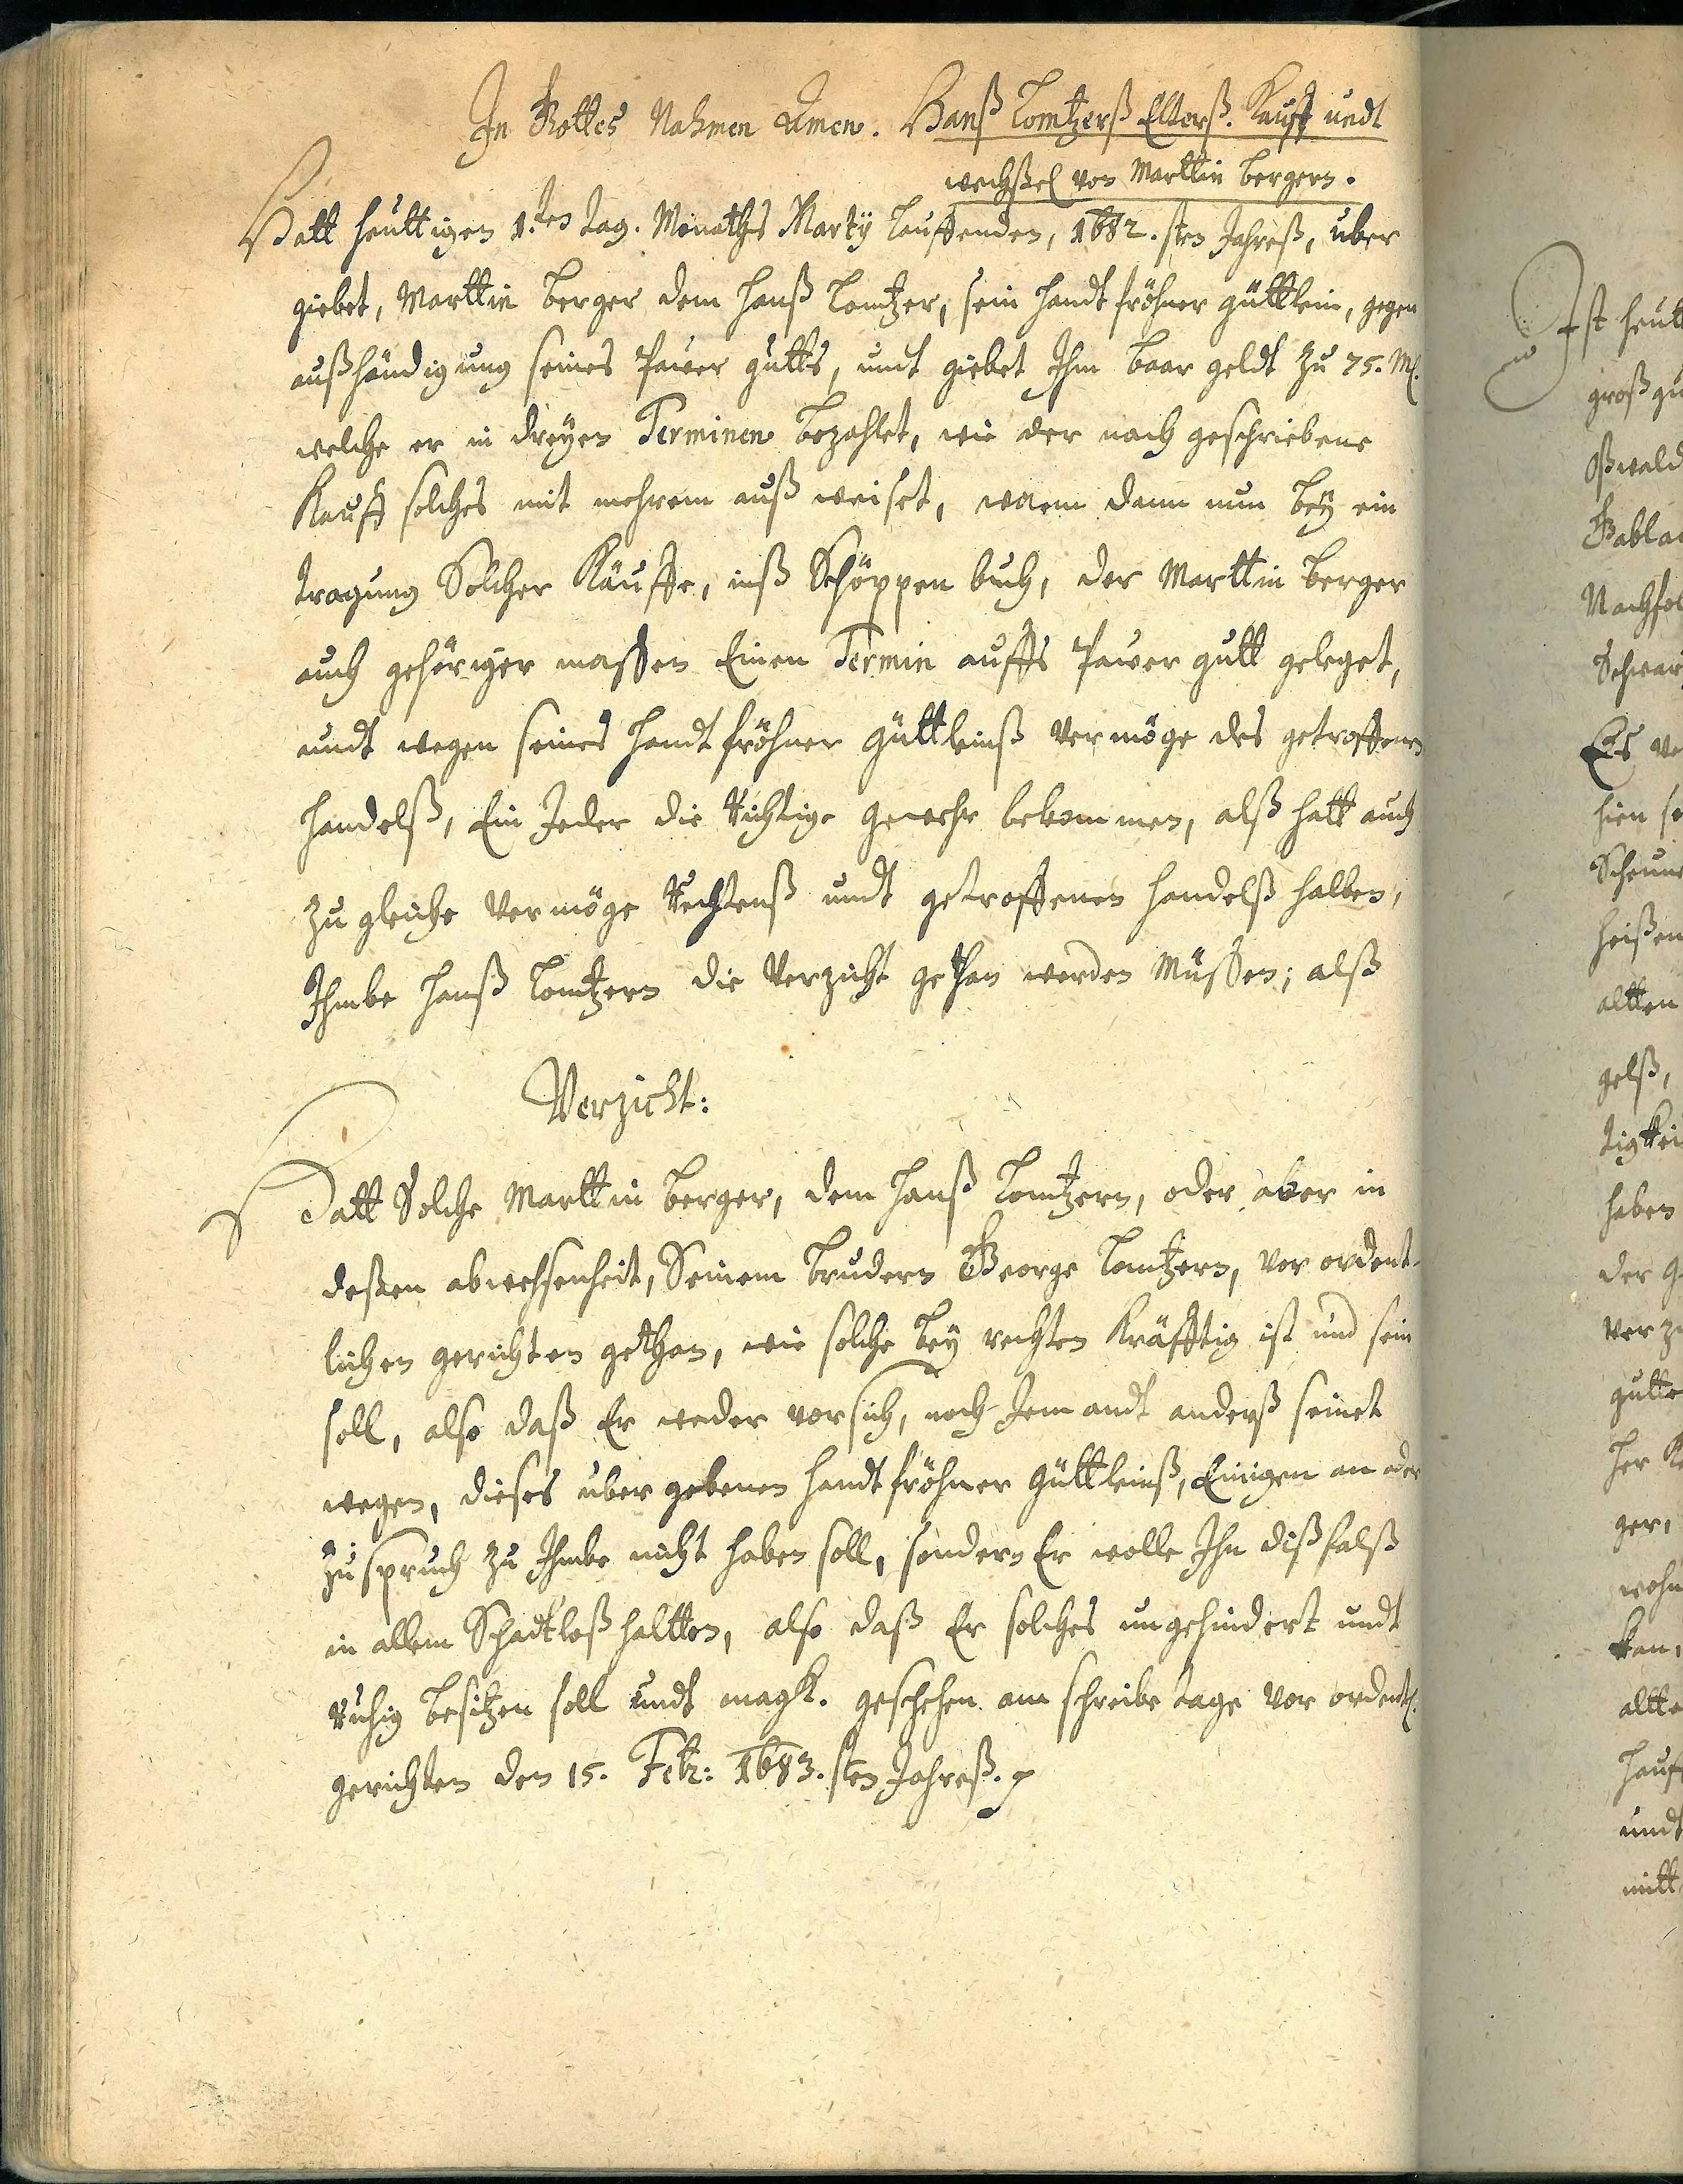 In Gottes Nahmen Amen. Hanß Lomtzerß Elterß. Kauff undt
wechßel von Marttin Bergern.
Hatt heuttigen 1.ten tag. Monathß Marty lauffenden, 1682.sten Jahreß, uber
giebet, Marttin Berger dem Hanß Lomtzer, sein handtfröhner güttlein, gegen
außhändigung seines Pauer gutts, undt giebet Ihm baar geldt zu 75. M.
welche er in dreyen Terminen bezahlet, wie der nach geschriebene
Kauff solches mit mehrem auß weiset, wenn dann nun bey ein
tragung Solcher Käuffe, inß Schöppen buch, der Marttin Berger
auch gehöriger massen Einen Termin auffs Pauer gutt geleget,
undt wegen seines handt fröhner güttleinß vermöge des getroffenen
handelß, Ein Jeder die Richtige gewehr bekommen, alß hatt auch
zu gleiche vermöge Rechtenß undt getroffenen handelß halben,
Ihmbe Hanß Lomtzern die Verzicht gethan werden Müssen; alß
Verzicht:
Hatt Solche Marttin Berger, dem Hanß Lomtzern, oder aber in
deßen abwehsenheit, Seinem Brudern George Lomtzern, vor ordent-
lichen gerichten gethan, wie solche bey rechten Kräfftig ist und sein
soll, also daß Er weder vor sich, noch Jemandt anderß seinet
wegen, dieses uber gebenen handtfröhner güttleinß, Einigen an oder
zuspruch zu Ihmbe nicht haben soll, sondern Er wolle Ihn dißfalß
in allem Schadtloß haltten, also daß Er solches ungehindert undt
Ruhig besitzen soll undt magk. geschehen am schreibe tage vor ordentl.
gerichten den 15. Febr: 1683.sten Jahreß.
Ist heutt
groß gu
Oßwald
Gablan
Nachfol
Schwar
Es ve
hien se
Scheune
heißen
altten
gelß,
tigkei
haben
der G
verzu
gutte
her K
ger,
wohn
kan,
altte
hauß
undt
mitt